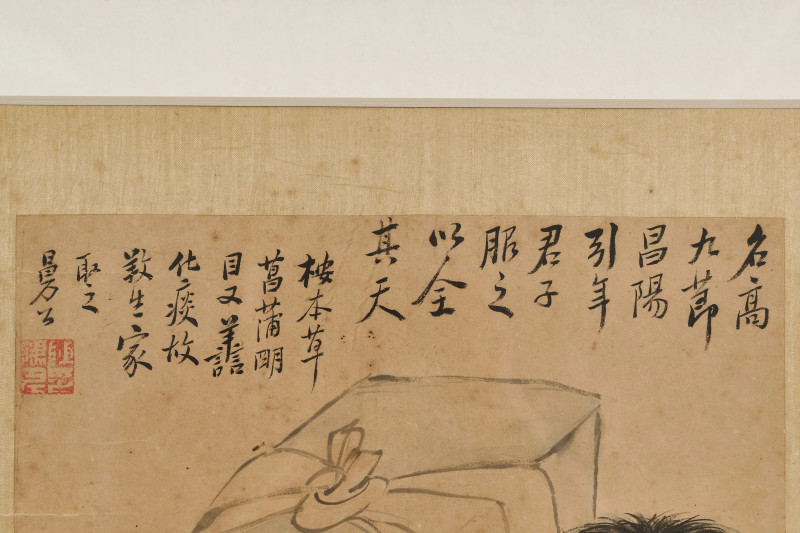 名高
九莭
昌陽
引年
君子
服之
以全
其天
桉本草
菖蒲明
目又
化痰故
養生家
取之
曼公